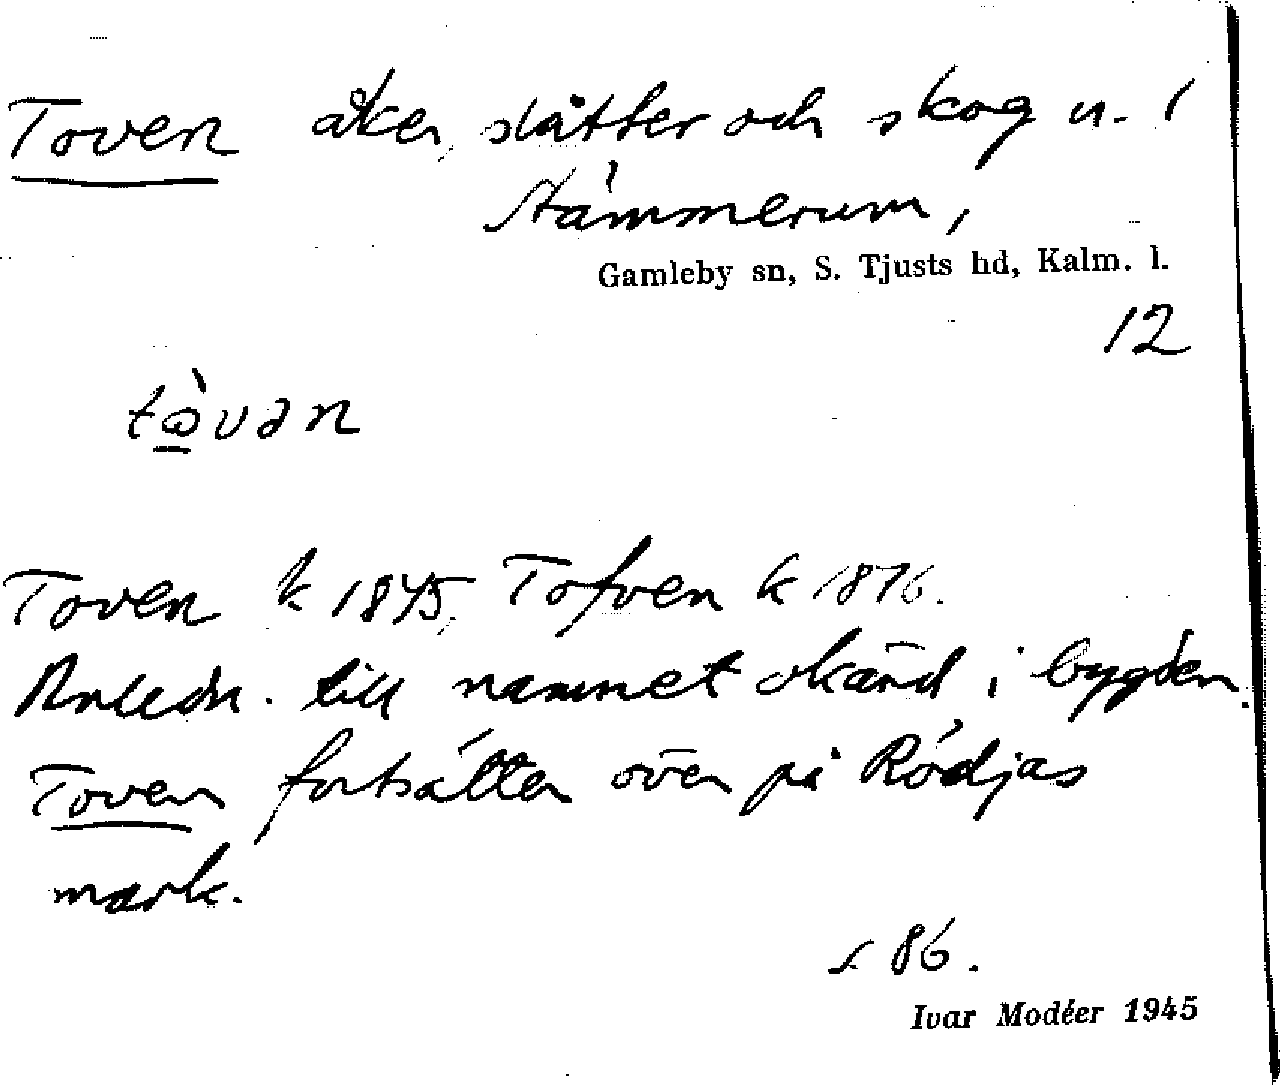 Toven åker, slåtter och skog u. 1
Stämmerum,
Gamleby sn, S. Tjusts hd, Kalm. l.
12
Toven k 1845, Tofven k 1876.
Anledn. till namnet okänd i bygden.
Toven fortsätter över på Rödjas
mark.
s 86.
Ivar Modéer 1945